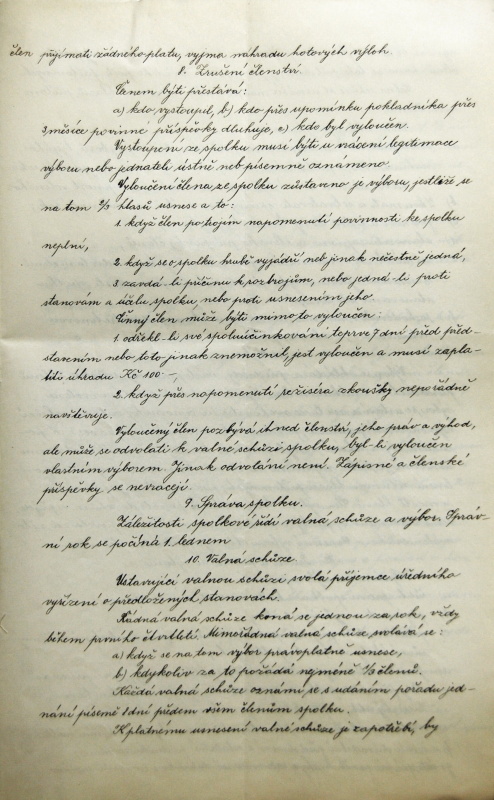 člen přijímati žádného platu, vyjma náhradu hotových výloh.
8. Zrušení členství.
Členem býti přestává:
a) kdo vystoupil, b) kdo přes upomínku pokladníka přes
3 měsíce povinné příspěvky dluhuje, c) kdo byl vyloučen.
Vystoupení ze spolku musí býti u vrácení legitimace
výboru nebo jednateli ústně neb písemně oznámeno.
Vyloučení člena ze spolku zůstaveno je výboru, jestliže se
na tom 2/3 hlasů usnese a to:
1. když člen po trojím napomenutí povinnosti ke spolku
neplní,
2. když se o spolku hrubě vyjádří neb jinak nečestně jedná,
3. zavdá-li příčinu k rozbrojům, nebo jedná-li proti
stanovám a účelu spolku, nebo proti usnesením jeho.
Činný člen může býti mimo to vyloučen:
1. odřekl-li své spoluúčinkování teprve 7 dní před před-
stavením nebo toto jinak znemožnil, jest vyloučen a musí zapla-
titi úhradu Kč 100.-,
2. když přes napomenutí režiséra zkoušky nepořádně
navštěvuje.
Vyloučený člen pozbývá ihned členství, jeho práv a výhod,
ale může se odvolati k valné schůzi spolku, byl-li vyloučen
vlastním výborem. Jinak odvolání není. Zápisné a členské
příspěvky se nevracejí.
9. Správa spolku.
Záležitosti spolkové řídí valná schůze a výbor. Správ-
ní rok se počíná 1. lednem
10. Valná schůze.
Ustavující valnou schůzi svolá příjemce úředního
vyřízení o předložených stanovách.
Řádná valná schůze koná se jednou za rok, vždy
během prvního čtvrtletí. Mimořádná valná schůze svolává se:
a) když se na tom výbor pravoplatně usnese,
b) kdykoliv za to požádá nejméně 1/3 členů.
Každá valná schůze oznámí se s udáním pořadu jed-
nání písemě 8 dní předem všem členům spolku.
K platnému usnesení valné schůze je zapotřebí, by